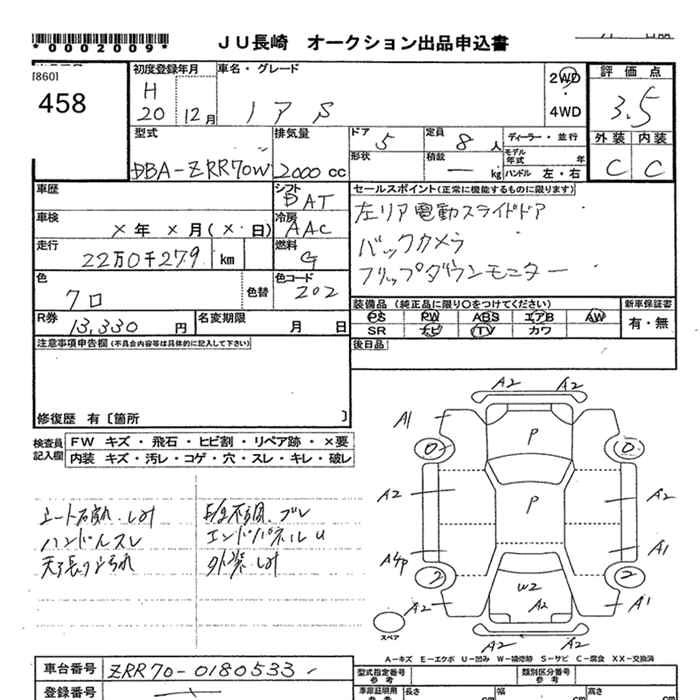 *0002009*
JU長崎 オークション出品申込書
[860]
458
初度登録年月
H
20 12月
車名・グレード
ノア S
2WD
4WD
評価点
3.5
型式
DBA-ZRR70W
排気量
2000 cc
ドア 5
定員 8 人
形状
積載 — kg
ディーラー・並行
モデル年式 年
ハンドル 左・右
外装 内装
C C
車歴
シフト
DAT
セールスポイント(正常に機能するものに限ります)
左リア電動スライドドア
バックカメラ
フリップダウンモニター
車検
×年 ×月(×・日)
冷房
AAC
走行
22万0千279 km
燃料
G
色
クロ
色替
色コード
202
R券
13,330円
名変期限
月 日
装備品(純正品に限り○をつけてください)
PS PW ABS エアB AW
SR ナビ TV カワ
新車保証書
有・無
注意事項申告欄(不具合内容等は具体的に記入して下さい)
後日品
修復歴 有〔箇所 〕
検査員記入欄
FW キズ・飛石・ヒビ割・リペア跡・×要
内装 キズ・汚レ・コゲ・穴・スレ・キレ・破レ
ハンドルスレ
エンドパネルU
A2 A2
A1
P
0 0
A2
P
A2
A4P
A1
2 2
W2
A2
A2
A1
スペア
A2 A2
A-キズ E-エクボ U-凹み W-補修跡 S-サビ C-腐食 XX-交換済
車台番号 ZRR70-0180533
型式指定番号
参考
類別区分番号
参考
登録番号 —
車庫証明用
参考
長さ cm
幅 cm
高さ cm